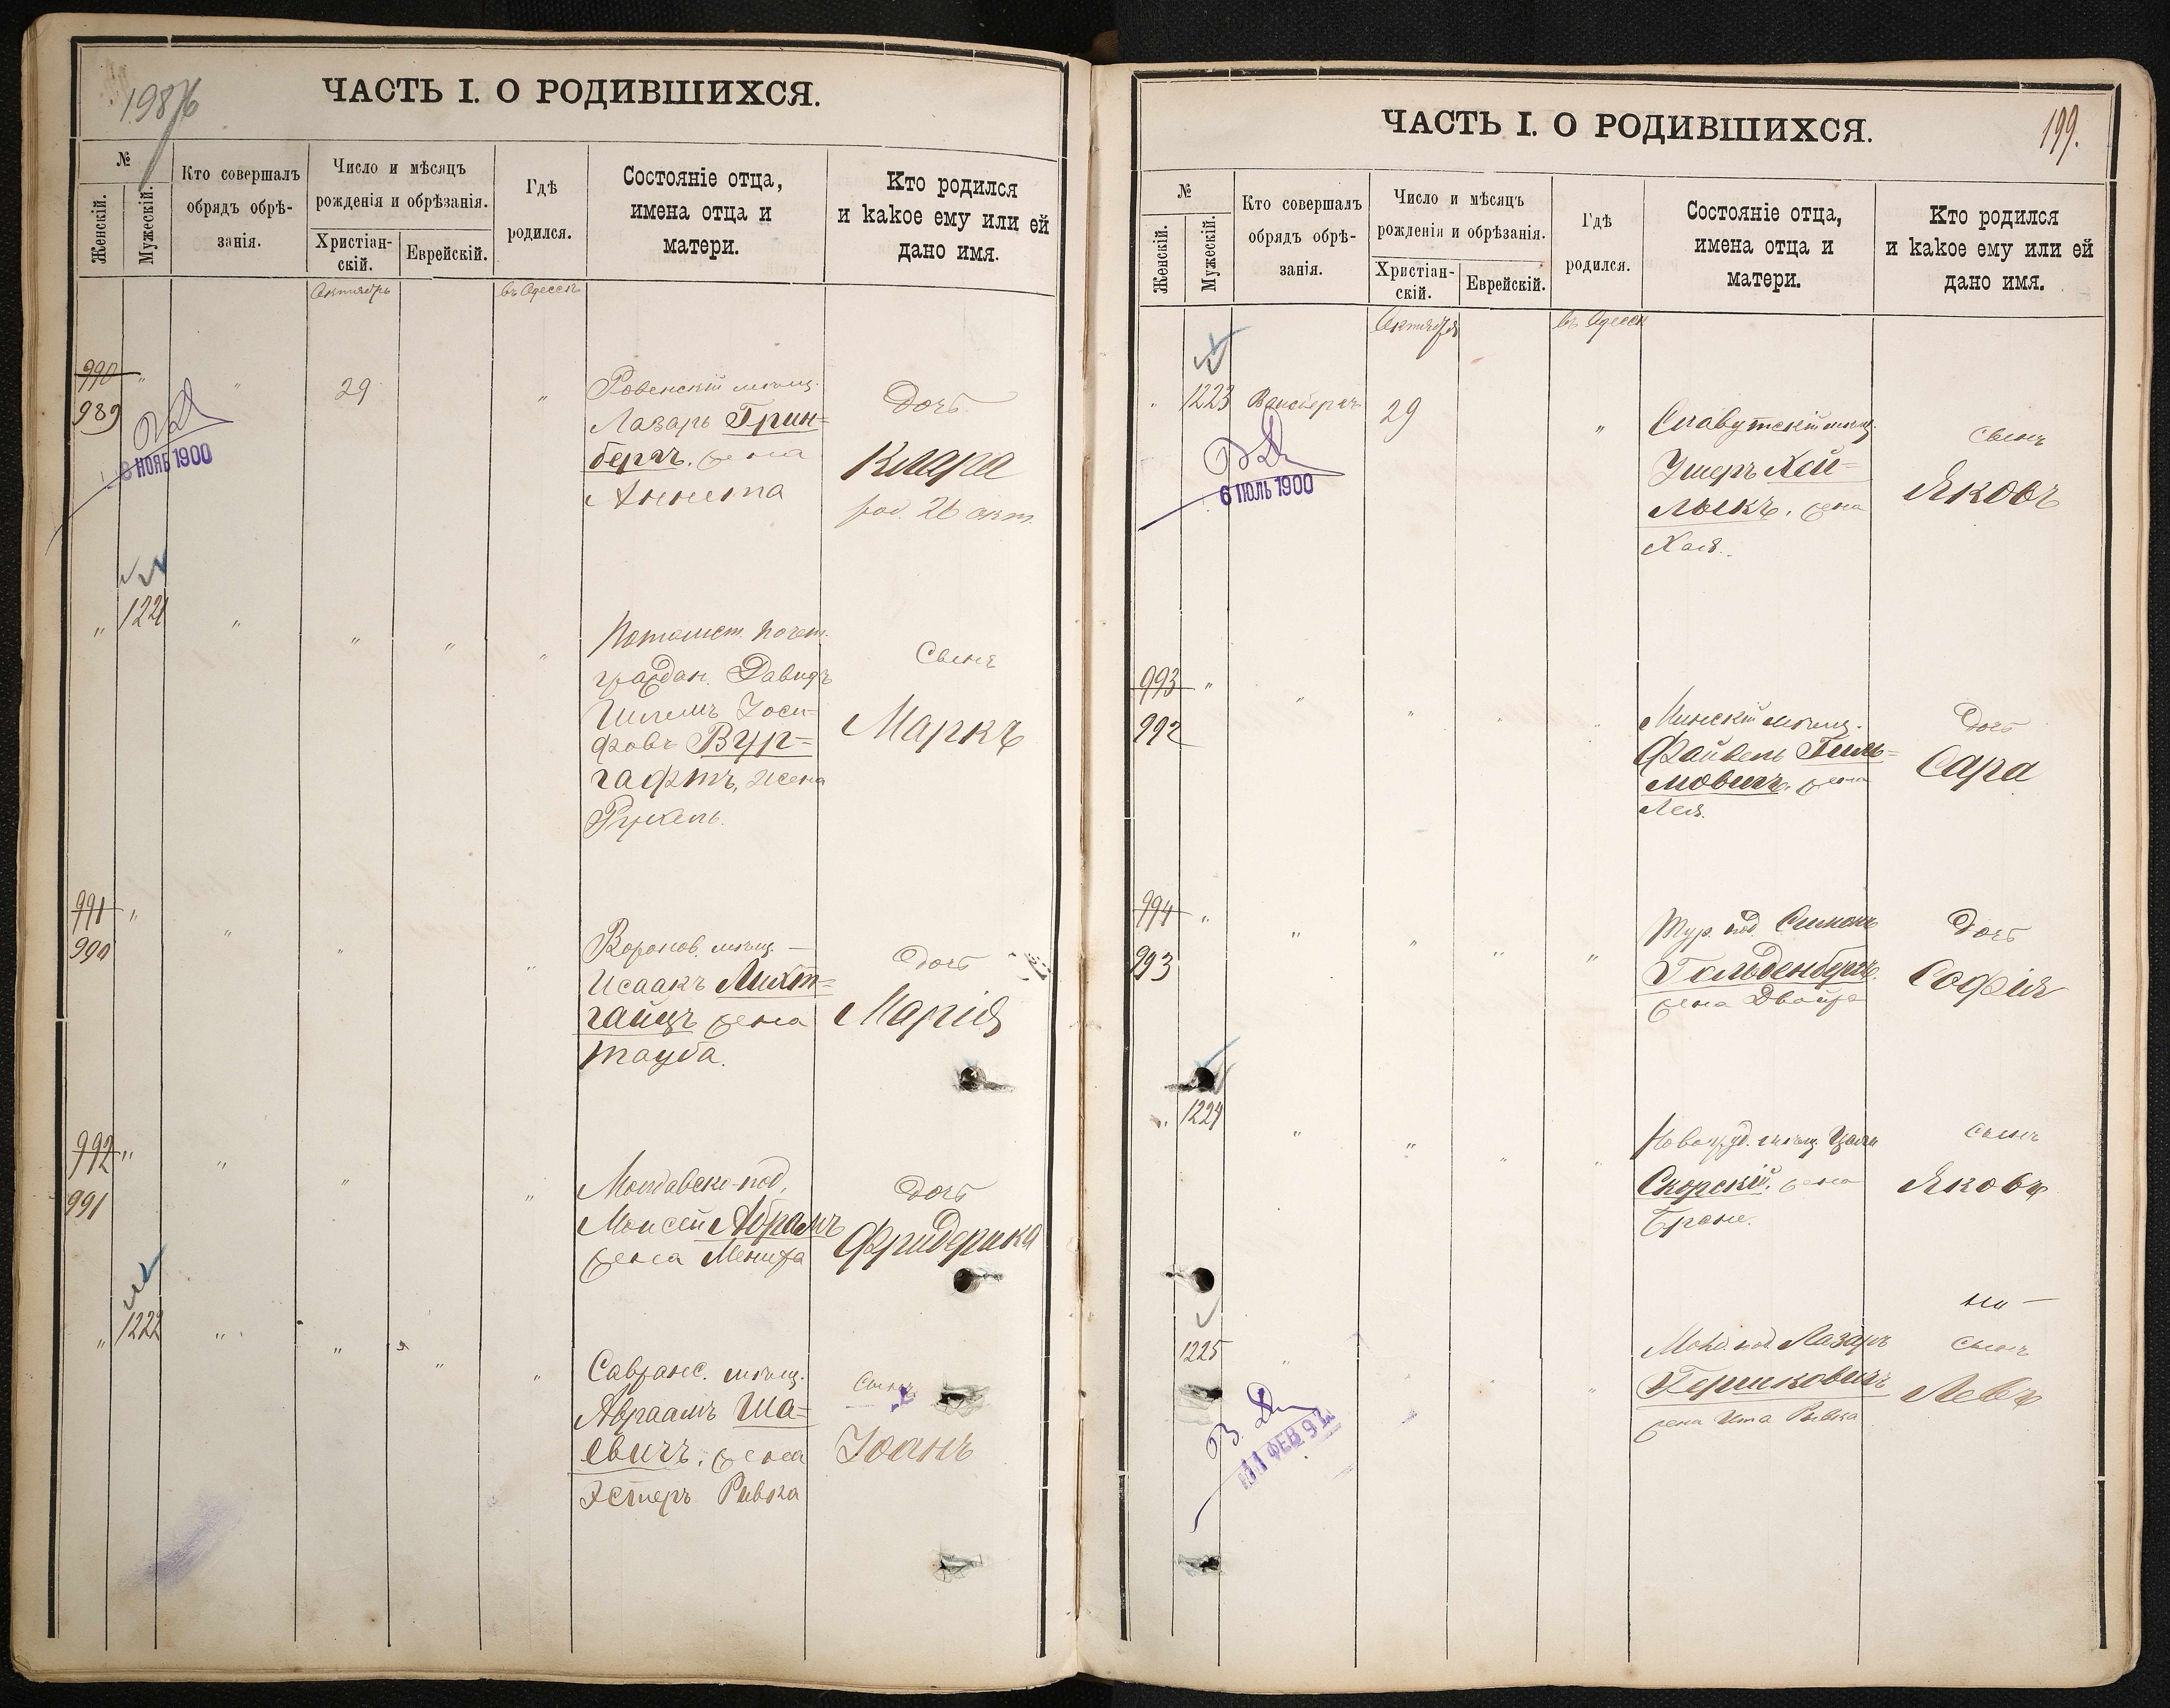 198 об
ЧАСТЬ I. О РОДИВШИХСЯ.
№
Женскій.
Мужескій.
Кто совершалъ
обрядъ обрѣ-
занія.
Число и мѣсяцъ
рожденія и обрѣзанія.
Христіан-
скій.
Еврейскій.
Гдѣ
родился.
Состояніе отца,
имена отца и
матери.
Кто родился
и какое ему или ей
дано имя.
Октябрь
въ Одессѣ
990
989
"
"
29
"
Ровенскій мѣщ.
Лазарь Грин=
бергъ. жена
Аннета
Дочь
Клара
род. 26 окт.
8 НОЯБ 1900
"
1221
"
"
"
"
Потомст. почет.
граждан. Давидъ
Шлемъ Іоси=
фовъ Вур=
гафтъ, жена
Рухель.
Сынъ
Маркъ
991
990
"
"
"
"
Воронов. мѣщ. —
Исаакъ Лихт=
гайцъ жена
Тауба.
Дочь
Марія
992
991
"
"
"
"
Молдавско-под.
Моисей Абрамъ
жена
Дочь
Фридерика
"
1222
"
"
"
"
Савранс. мѣщ.
Авраамъ Ша=
евичъ. жена
Эстеръ Ривка
Сынъ
Іоанъ
199.
ЧАСТЬ I. О РОДИВШИХСЯ.
№
Женскій.
Мужескій.
Кто совершалъ
обрядъ обрѣ-
занія.
Число и мѣсяцъ
рожденія и обрѣзанія.
Христіан-
скій.
Еврейскій.
Гдѣ
родился.
Состояніе отца,
имена отца и
матери.
Кто родился
и какое ему или ей
дано имя.
Октября
въ Одессѣ
"
1223
29
"
Славутскій мѣщ.
Ушеръ Хай=
лыкъ. жена
Хая.
Сынъ
Яковъ
6 ІЮЛЬ 1900
993
992
"
"
"
"
"
Минскій мѣщ.
Файвель Гиль=
мовичъ. жена
Лея.
Дочь
Сара
994
993
"
"
"
"
"
Тур. под. Симонъ
Гольденбергъ.
жена Двойра
Дочь
Софія
"
1224
"
"
"
"
мѣщ.
Скорскій. жена
Бране.
сынъ
Яковъ
1225
"
"
Молд. под. Лазарь
Гершковичъ
жена Ита Ривка
сынъ
Левъ
11 ФЕВ 9